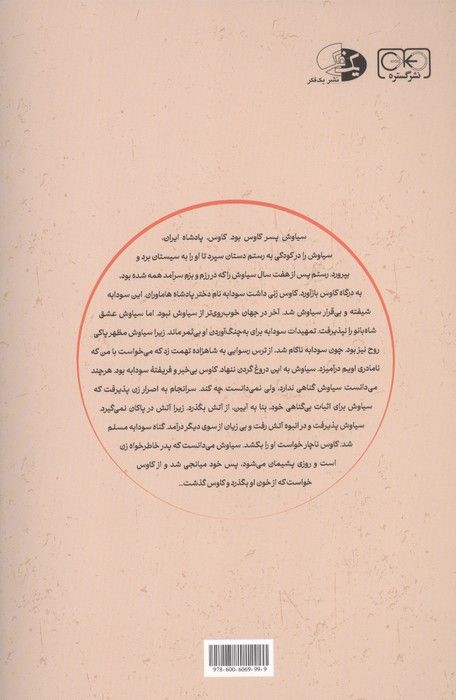 نشر گستره
یک فکر
نشر یک‌فکر
سیاوش پسر کاوس بود. کاوس، پادشاه ایران،
سیاوش را در کودکی به رستم دستان سپرد تا او را به سیستان برد و
بپرورد. رستم پس از هفت سال سیاوش را که در رزم و بزم سرآمد همه شده بود،
به درگاه کاوس بازآورد. کاوس زنی داشت سودابه نام دختر پادشاه هاماوران. این سودابه
شیفته و بی‌قرار سیاوش شد. آخر در جهان خوب‌روی‌تر از سیاوش نبود. اما سیاوش عشق
شاه‌بانو را نپذیرفت. تمهیدات سودابه برای به‌چنگ‌آوردن او بی‌ثمر ماند. زیرا سیاوش مظهر پاکی
روح نیز بود. چون سودابه ناکام شد، از ترس رسوایی به شاهزاده تهمت زد که می‌خواست با من که
نامادری اویم درآمیزد. سیاوش به این دروغ گردن ننهاد. کاوس بی‌خبر و فریفتهٔ سودابه بود. هرچند
می‌دانست سیاوش گناهی ندارد، ولی نمی‌دانست چه کند. سرانجام به اصرار زن پذیرفت که
سیاوش برای اثبات بی‌گناهی خود، بنا به آیین، از آتش بگذرد. زیرا آتش در پاکان نمی‌گیرد.
سیاوش پذیرفت و در انبوه آتش رفت و بی زیان از سوی دیگر درآمد. گناه سودابه مسلم
شد. کاوس ناچار خواست او را بکشد. سیاوش می‌دانست که پدر خاطرخواه زن
است و روزی پشیمان می‌شود، پس خود میانجی شد و از کاوس
خواست که از خون او بگذرد و کاوس گذشت...
978-600-6069-99-9